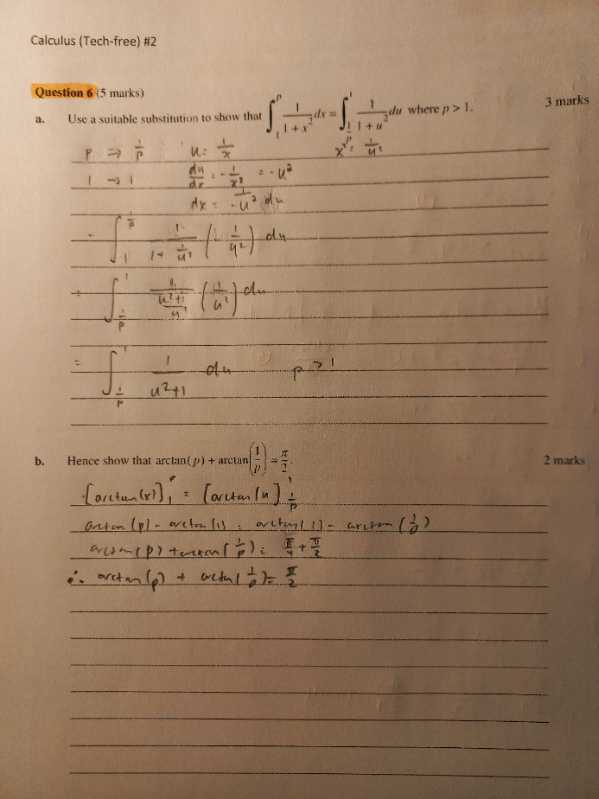 Calculus (Tech-free) #2
Question 6 (5 marks)
a. Use a suitable substitution to show that ∫₁^p 1/(1+x²) dx = ∫_{1/p}^1 1/(1+u²) du where p > 1. 3 marks
p ⇒ 1/p u = 1/x x² = 1/u²
1 → 1 du/dx = -1/x² = -u²
dx = -1/u² du
= ∫₁^{1/p} 1/(1+1/u²) (-1/u²) du
= ∫_{1/p}^1 1/((u²+1)/u²) (1/u²) du
= ∫_{1/p}^1 1/(u²+1) du p > 1
b. Hence show that arctan(p) + arctan(1/p) = π/2. 2 marks
[arctan(x)]₁^p = [arctan(u)]_{1/p}^1
arctan(p) - arctan(1) = arctan(1) - arctan(1/p)
arctan(p) + arctan(1/p) =
∴ arctan(p) + arctan(1/p) = π/2